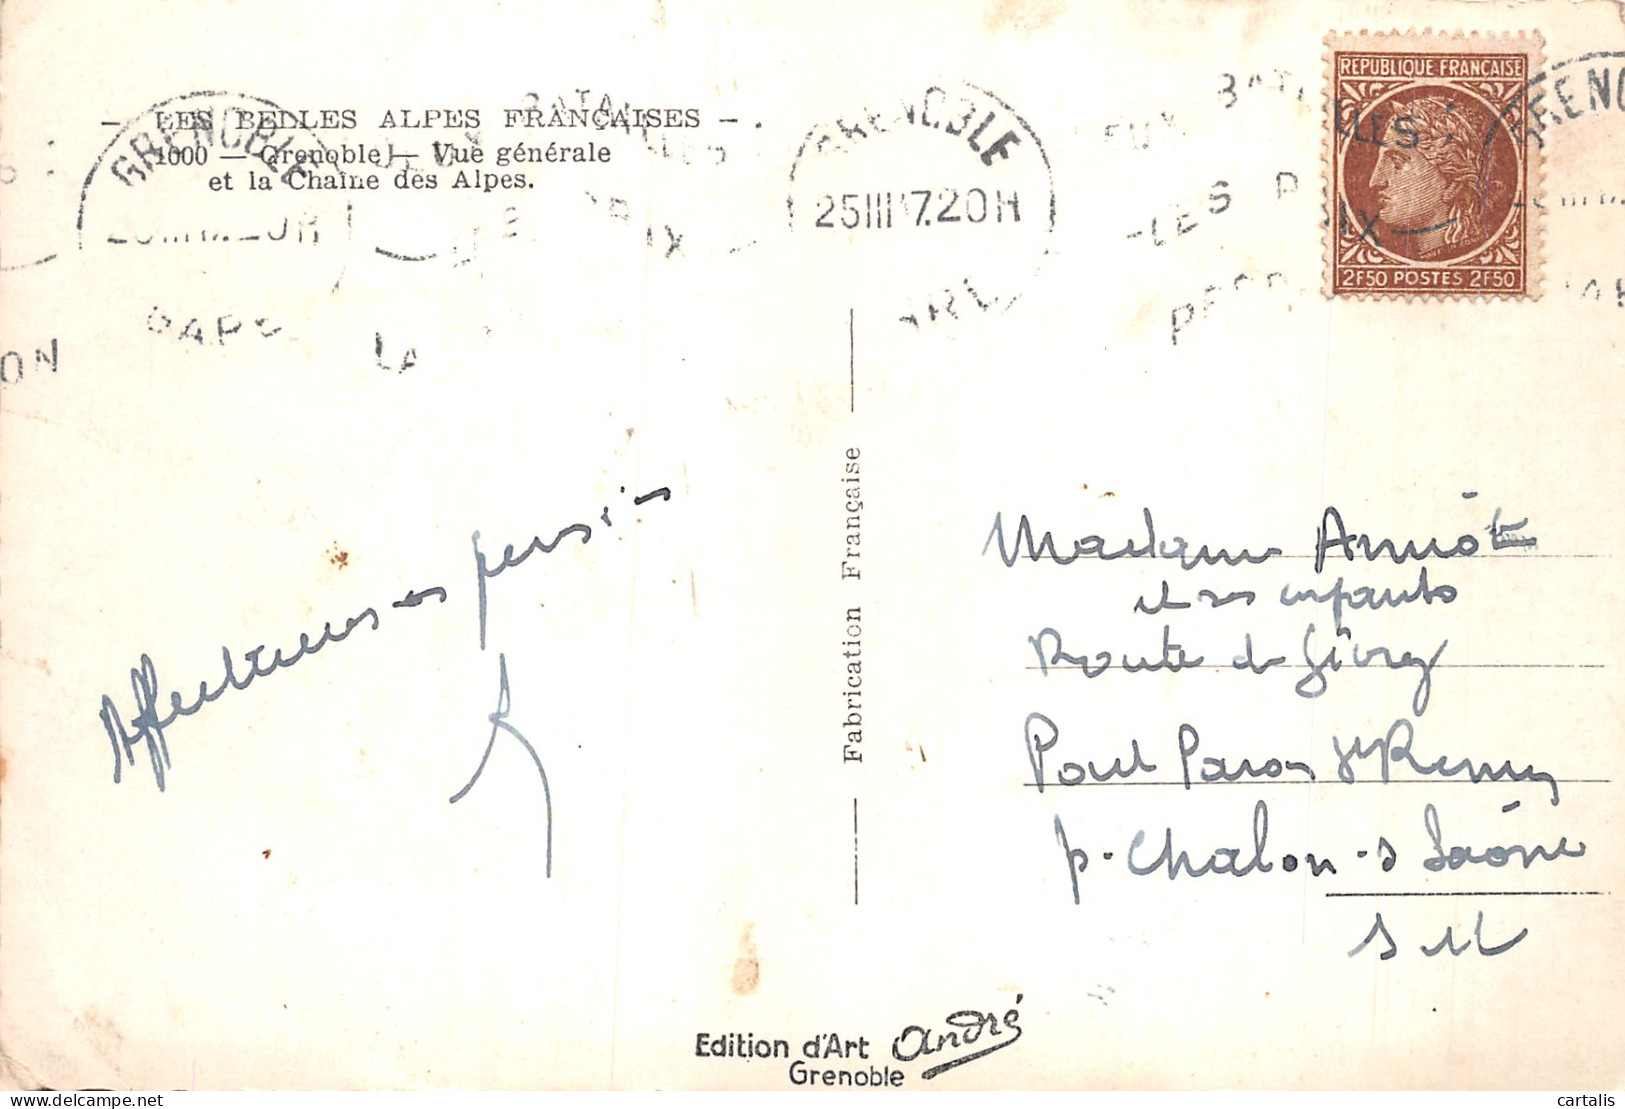 — LES BELLES ALPES FRANÇAISES —
1000 — Grenoble — Vue générale
et la Chaîne des Alpes.
GRENOBLE
GRENOBLE
25 III 47. 20H
DEUX BATAILLES
LES PRIX
GRENO
REPUBLIQUE FRANÇAISE
2F50 POSTES 2F50
Affectueuses pensées
Fabrication Française
Madame Amiot
et ses enfants
Route de Givry
Pont Paron St Remy
p. Chalon-s Saône
S et L
Edition d'Art André
Grenoble
cartalis